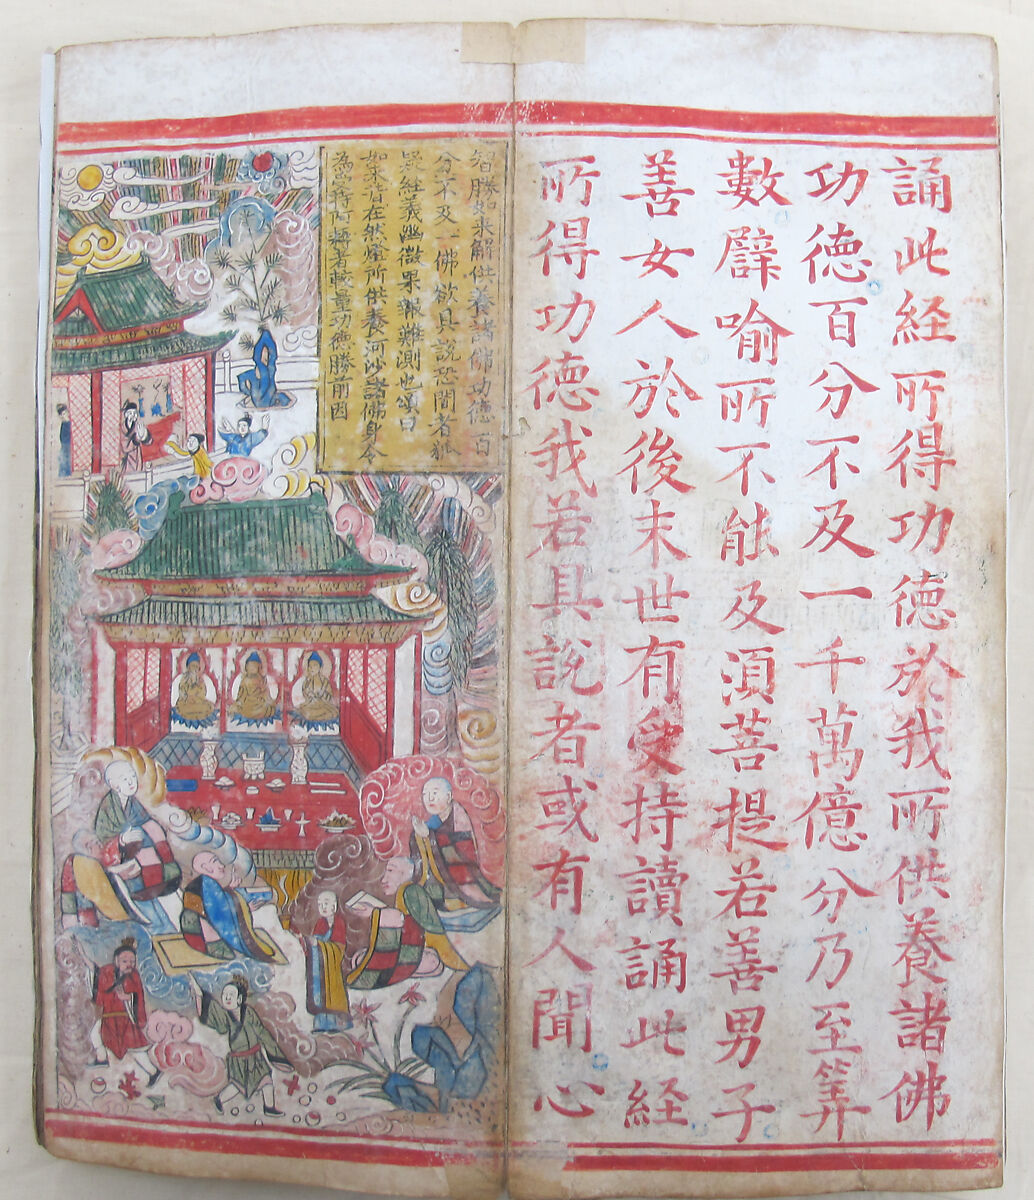 誦此経所得功德於我所供養諸佛
功德百分不及一千萬億分乃至筭
數譬喻所不能及湏菩提若善男子
善女人於後末世有受持讀誦此経
所得功德我若具說者或有人聞心
智勝如來解供養諸佛功德百
分不及一佛欲具說恐聞者狐
疑経義幽微果報難測也頌曰
如來昔在然燈所供養河沙諸佛身今
為持阿者較量功德勝前因